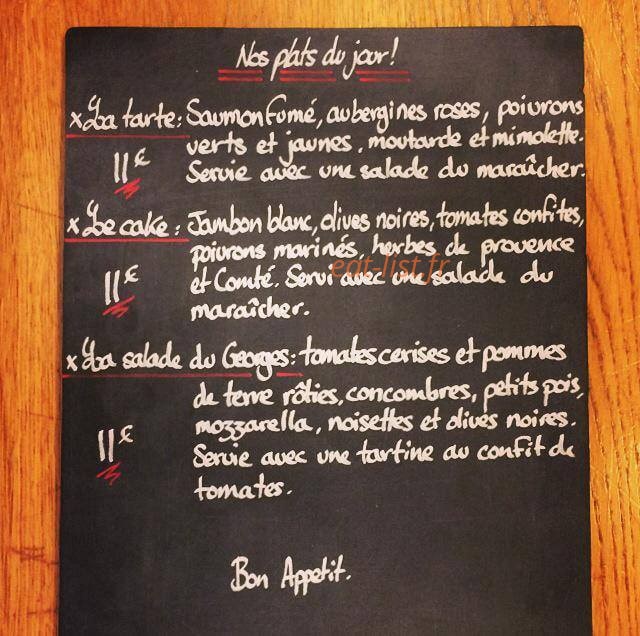 Nos plats du jour!
x La tarte: Saumon fumé, aubergines roses, poivrons
verts et jaunes, moutarde et mimolette.
11€ Servie avec une salade du maraîcher.
x Le cake: Jambon blanc, olives noires, tomates confites,
poivrons marinés, herbes de provence
11€ et Comté. Servi avec une salade du
maraîcher.
eat-list.fr
x La salade du Georges: tomates cerises et pommes
de terre rôties, concombres, petits pois,
11€ mozzarella, noisettes et olives noires.
Servie avec une tartine au confit de
tomates.
Bon Appetit.